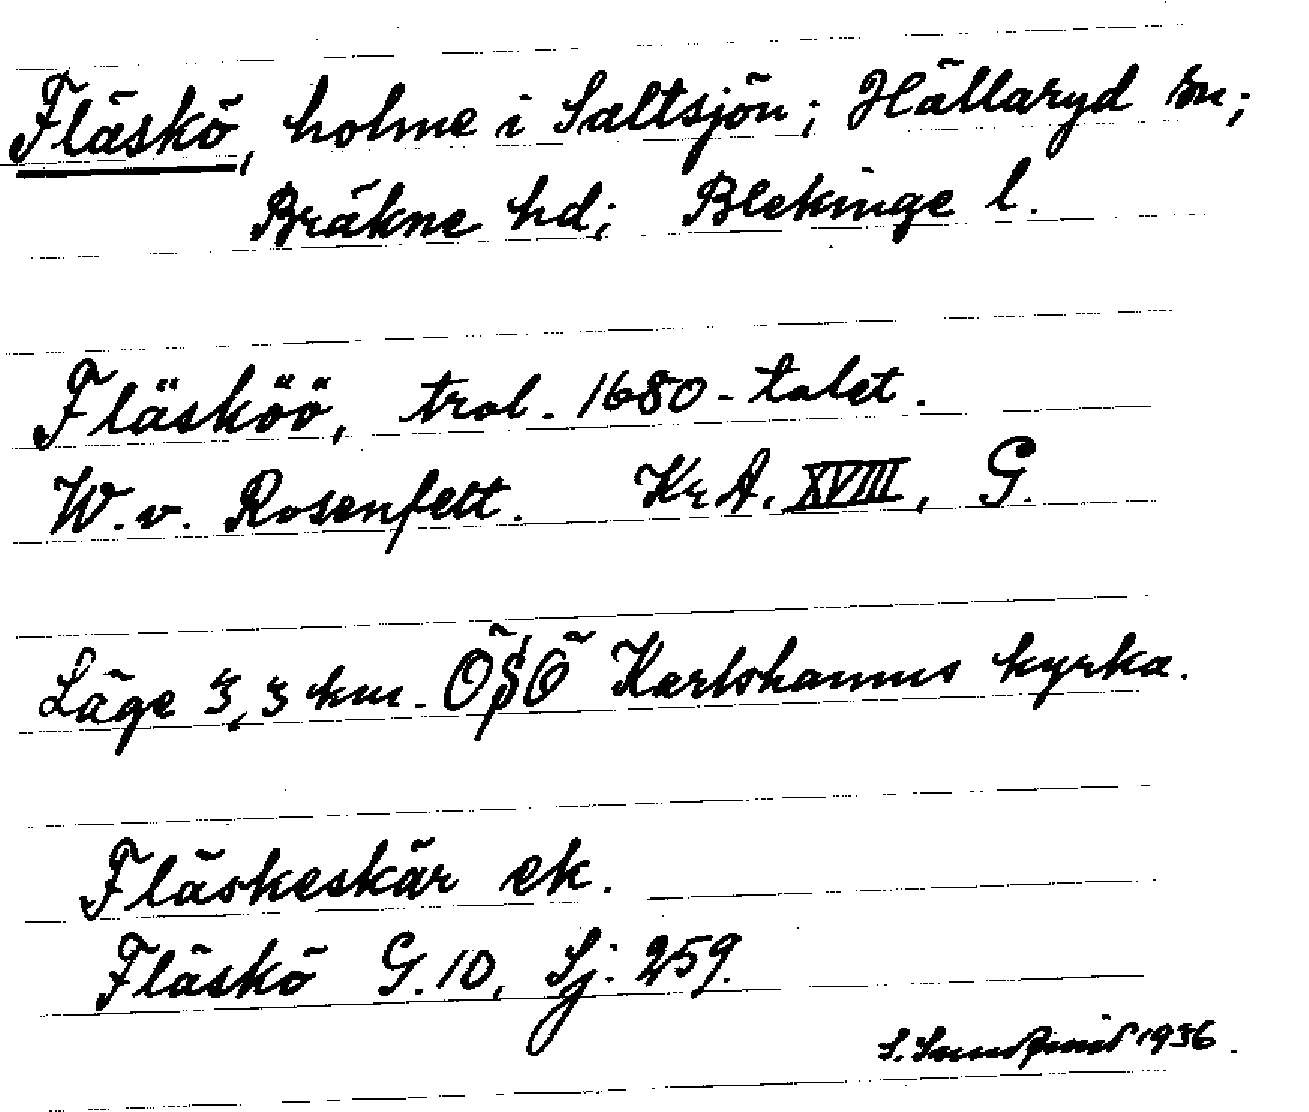 Fläskö, holme i Saltsjön; Hällaryd sn;
Bräkne hd; Blekinge l.
Fläsköö, trol. 1680-talet.
W. v. Rosenfelt. KrA. XVIII, G.
Läge 3,3 km. ÖSÖ Karlshamns kyrka.
Fläskeskär ek.
Fläskö G. 10, Sj. 259.
S. 1936.